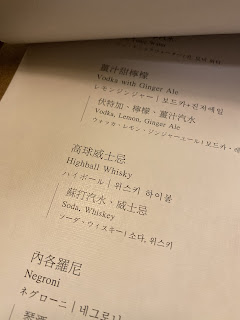 薑汁甜檸檬
Vodka with Ginger Ale
レモンジンジャー | 보드카+진저에일
伏特加、檸檬、薑汁汽水
Vodka, Lemon, Ginger Ale
ウォッカ・レモン・ジンジャーエール | 보드카、레
高球威士忌
Highball Whisky
ハイボール | 위스키 하이볼
蘇打汽水、威士忌
Soda, Whiskey
ソーダ・ウィスキー | 소다, 위스키
內各羅尼
Negroni
ネグローニ | 네그로니
琴酒